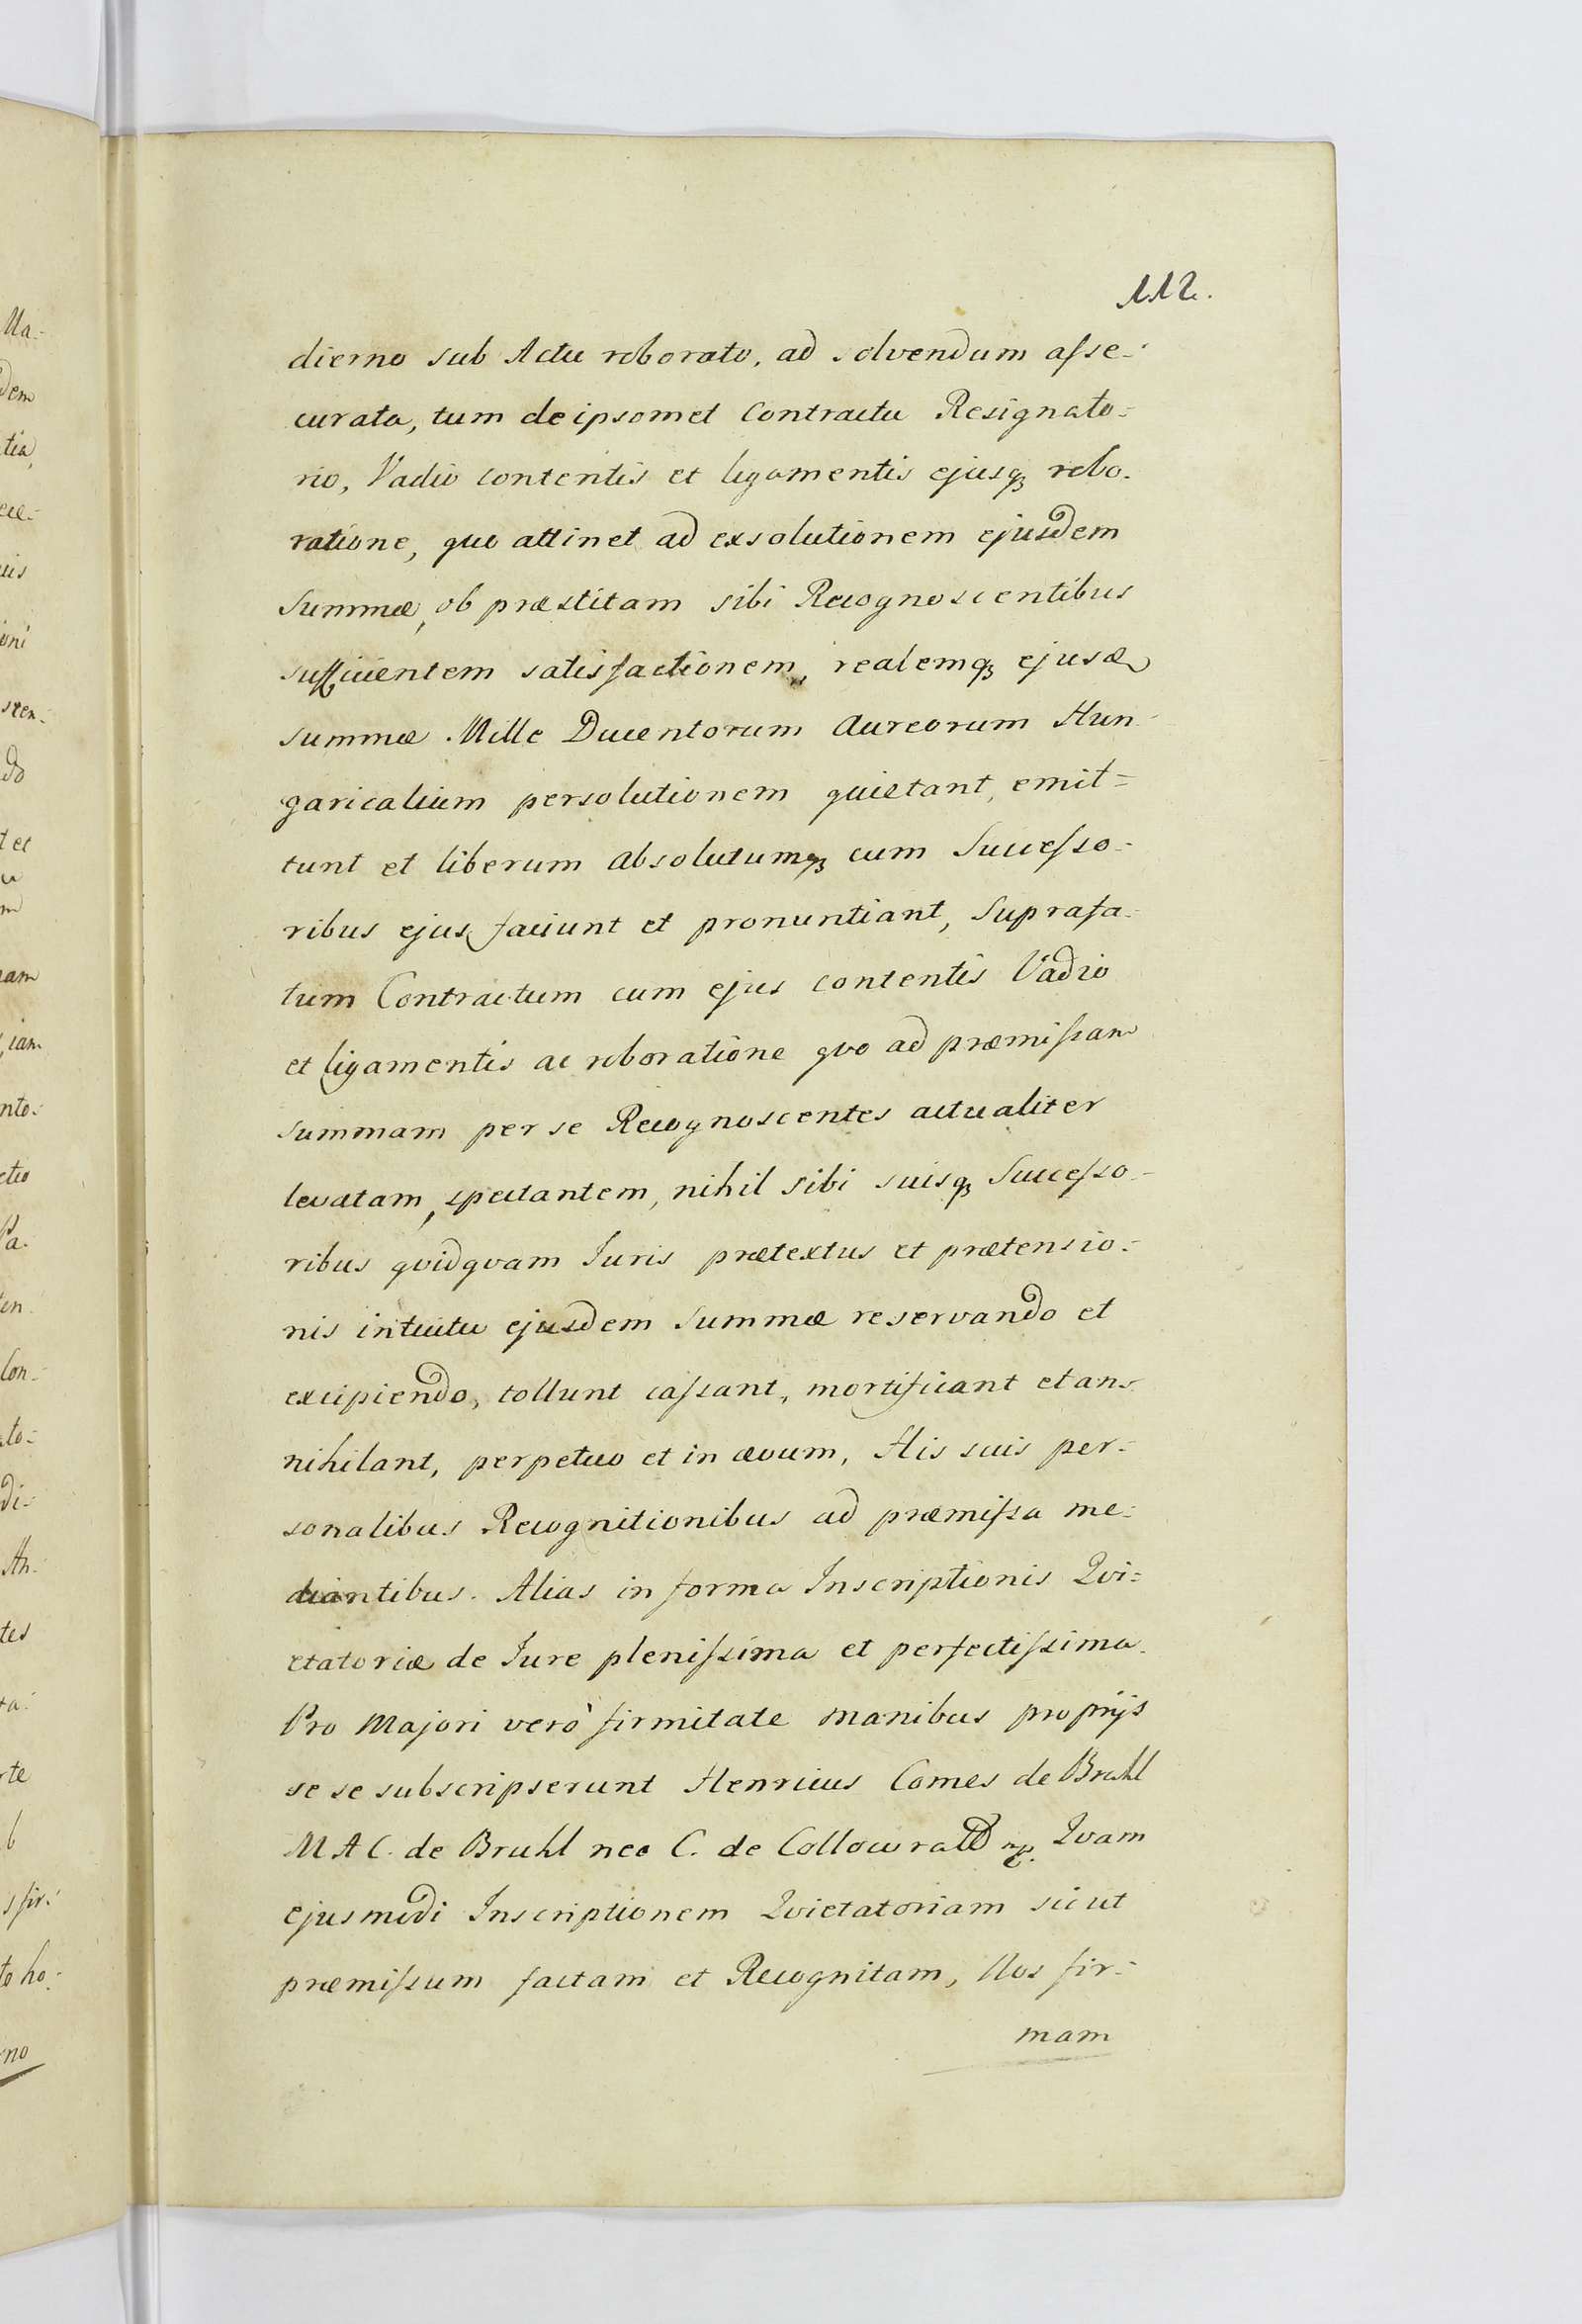 112.
dierno sub Actu roborato, ad solvendum aſse-
curata, tum de ipsomet Contractu Resignato=
rio, Vadio contentis et ligamentis ejusqꝫ robo-
ratione, quo attinet ad exsolutionem ejusdem
Summæ, ob præstitam sibi Recognoscentibus
sufficientem satisfactionem, realemqꝫ ejusd
summæ Mille Ducentorum Aureorum Hun-
garicalium persolutionem quietant, emit=
tunt et liberum absolutumqꝫ cum Succeſso-
ribus ejus faciunt et pronuntiant, Suprafa-
tum Contractum cum ejus contentis Vadio
et ligamentis ac roboratione qvo ad præmiſsam
summam per se Recognoscentes actualiter
levatam, spectantem, nihil sibi suisqꝫ Succeſso-
ribus qvidqvam Juris prætextus et prætensio-
nis intuitu ejusdem Summæ reservando et
excipiendo, tollunt caſsant, mortificant et an-
nihilant, perpetuo et in ævum, His suis per-
sonalibus Recognitionibus ad præmiſsa me-
diantibus. Alias in forma Inscriptionis Qvi=
etatoriæ de Jure pleniſsima et perfectiſsima.
Pro Majori verò firmitate manibus proprijs
se se subscripserunt Henricus Comes de Bruhl
M A C. de Bruhl nee C. de Collowratd Qvam
ejusmodi Inscriptionem Qvietatoriam sicut
præmiſsum factam et Recognitam, Nos fir-
mam